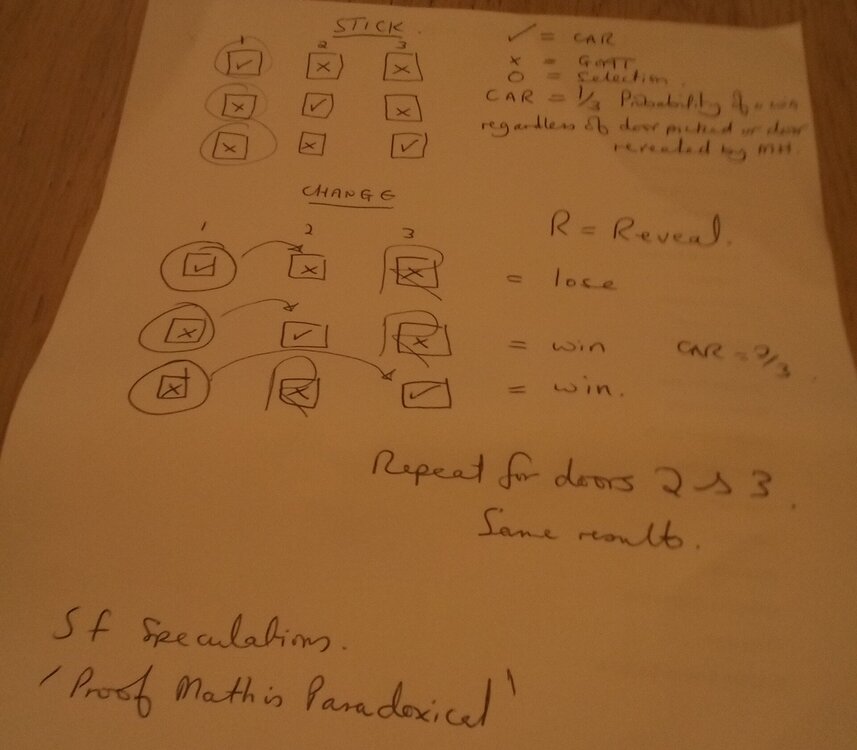 STICK
1 2 3
✓ x x
x ✓ x
x x ✓
✓ = CAR
x = GOAT
O = Selection
CAR = 1/3 Probability of a win
regardless of door picked or door
revealed by MH.
CHANGE
1 2 3
R = Reveal.
✓ x x = lose
x ✓ x = win CAR = 2/3
x x ✓ = win.
Repeat for doors 2 & 3.
Same results.
Sf Speculations.
'Proof Math is Paradoxical'